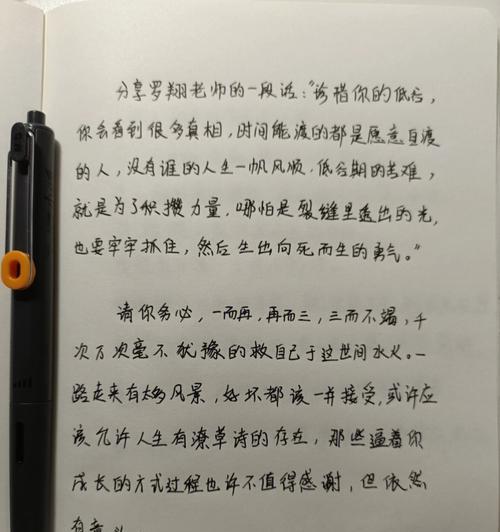 分享罗翔老师的一段话："珍惜你的低谷，
你会看到很多真相，时间能渡的都是愿意自渡
的人，没有谁的人生一帆风顺，低谷期的苦难，
就是为了积攒力量，哪怕是裂缝里透出的光，
也要牢牢抓住，然后生出向死而生的勇气。"
请你务必，一而再，再而三，三而不竭，千
次万次毫不犹豫的救自己于这世间水火。一
路走来有太多风景，好坏都该一并接受，或许应
该允许人生有潦草诗的存在，那些逼着你
成长的方式过程也许不值得感谢，但依然
有意